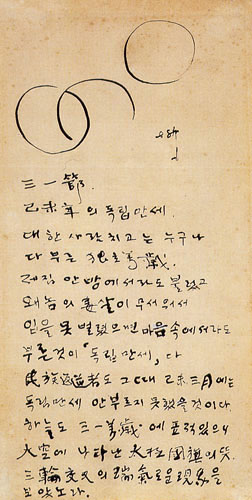 三一節.
己未年의 독립만세.
대한사람치고는 누구나
다 부른 萬歲.
제집 안방에서라도 불렀고
왜놈의 총살이 무서워서
입을 못 벌렸으면 마음속에서라도
부른것이 "독립만세,, 다
民族 者도 그대 己未三月에는
독립만세 안부르지 못했을것이다.
하늘도 三一萬歲에
大空에 나타난 太極 의 뜻.
三輪 의 瑞氣로운 現象을
보았노라.